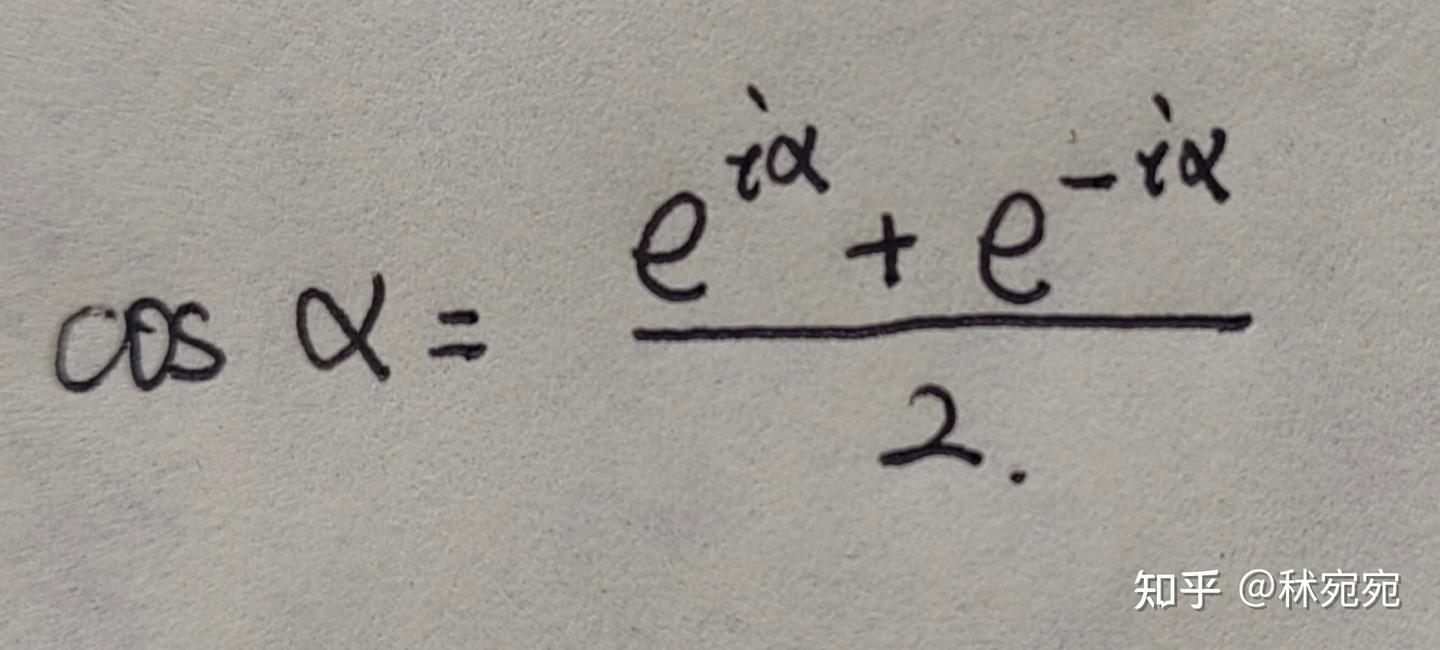 cos α = (e^{iα} + e^{-iα}) / 2.
知乎 @秫宛宛